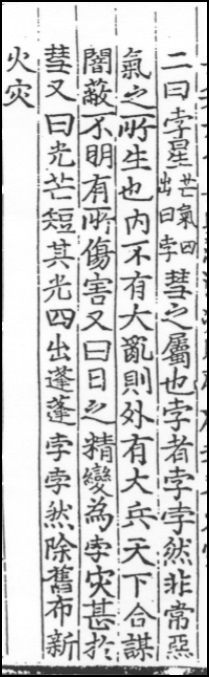 二曰孛星芒氣四出曰孛彗之屬也孛者孛孛然非常惡
氣之所生也內不有大亂則外有大兵天下合謀
闇蔽不明有所傷害又曰日之精變為孛灾甚於
彗又曰光芒短其光四出蓬蓬孛孛然除舊布新
火灾